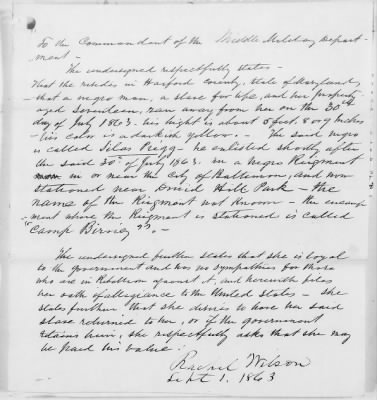 To the Commandant of the Middle Military Depart-
ment -
The undersigned respectfully states -
That she resides in Harford County, State of Maryland,
- that a negro man, a slave for life, and her property
aged Seventeen, ran away from her on the 30th
day of July 1863. his hight is about 5 feet. 8 or 9 Inches
- his color is a darkish yellow. - The said negro
is called Silas Prigg - he enlisted shortly after
the said 30th of July 1863. in a negro Regiment
in or near the City of Baltimore, and now
stationed near Druid Hill Park - the
name of the Regiment not known - the encamp-
ment where the Regiment is stationed is called
"Camp Birney". -
The undersigned further states that she is loyal
to the government and has no sympathies for those
who are in Rebellion against it, and herewith files
her oath of allegiance to the United States - She
states further that she desires to have her said
slave returned to her, or if the government
retains him, she respectfully asks that she may
be paid his value. -
Rachel Wilson
Sept 1. 1863